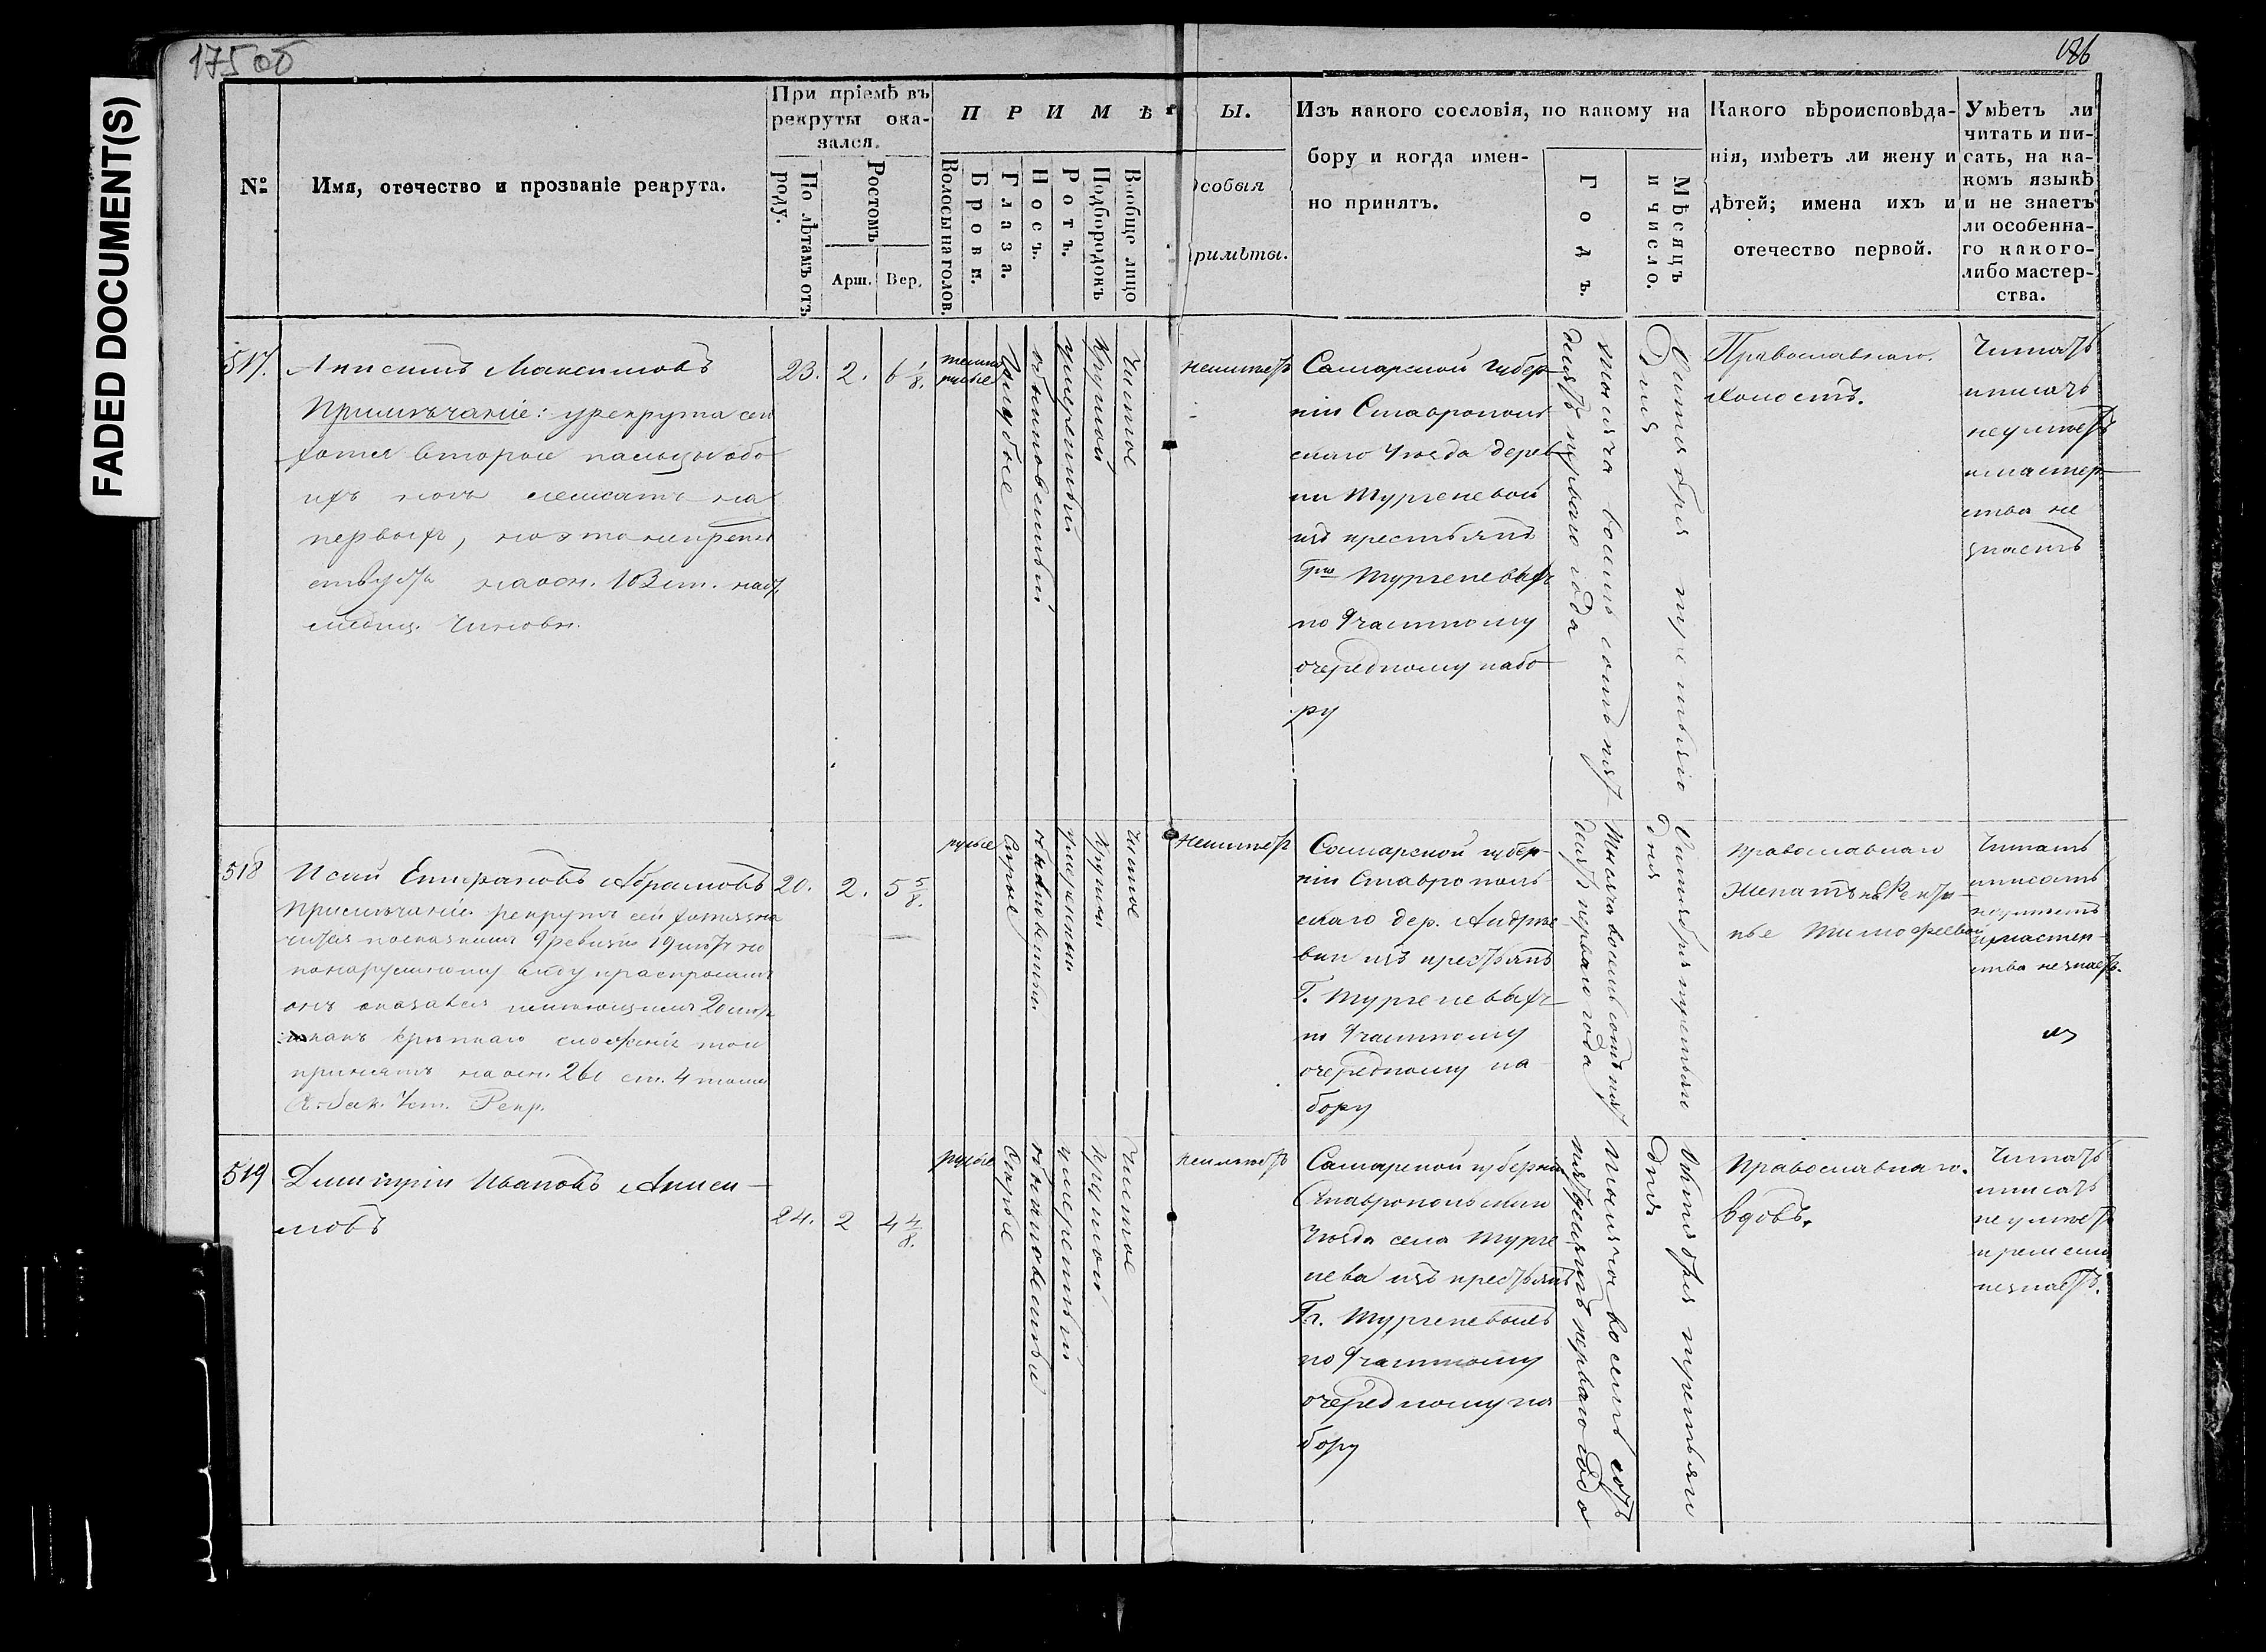 175 об
176
FADED DOCUMENT(S)
№
Имя, отечество и прозваніе рекрута.
При пріемѣ въ
рекруты ока-
зался.
По лѣтамъ отъ
роду.
Ростомъ
Арш.
Вер.
П Р И М Ѣ Т Ы.
Волосы на голов.
Брови.
Глаза.
Носъ.
Ротъ.
Подбородокъ
Вообще лицо
Особыя
примѣты.
Изъ какого сословія, по какому на
бору и когда имен-
но принятъ.
Годъ.
Мѣсяцъ
и число.
Какого вѣроисповѣда-
нія, имѣетъ ли жену и
дѣтей; имена ихъ и
отечество первой.
Умѣетъ ли
читать и пи-
сать, на ка-
комъ языкѣ
и не знаетъ
ли особенна-
го какого-
либо мастер-
ства.
517.
Анисимъ Максимовъ
Примѣчаніе: у рекрута сего
хотя вторые пальцы обо
ихъ ногъ лежатъ на
первыхъ, но это непрепят
ствуетъ на осн. 103 ст. наст.
медиц. Чиновн.
23.
2.
6 1/8.
темно
русые
Голубые
обыкновенный
умеренный
Круглой
Чистое
неимѣетъ
Самарской Губер-
ніи Ставрополь
скаго Уѣзда дерев
ни Тургеневой
изъ крестьянъ
Гдъ Тургеневыхъ
по Участному
очередному набо
ру
тысяча восемь сотъ пять
десятъ перваго года
Октября третьяго
Дня
Православнаго.
холостъ.
Читать
и писать
неумѣетъ
и мастер
ства не
знаетъ
518
Исай Евграфовъ Абрамовъ
Примѣчаніе рекрутъ сей хотя зна
чится по сказкамъ 9 ревизіи 19 лѣтъ но
по наружному виду и распросамъ
онъ оказался имеющимъ 20 лѣтъ
и какъ крепкаго сложенія то и
принятъ на осн. 261 ст. 4 тома
Св. Зак. Уст. Рекр.
20.
2.
5 5/8.
русые
Серые
обыкновенный
умеренный
Круглой
Чистое
неимѣетъ
Самарской губер-
ніи Ставрополь
скаго дер. Андрѣе
вки изъ крестьянъ
Г. Тургеневыхъ
по Участному
очередному на-
бору
тысяча восемь сотъ пять
десятъ перваго года
Октября третьяго
дня
православнаго
женатъ на
Тимофеевой
Читать
и писать
неумѣетъ
и мастер-
ства незнаетъ.
519
Димитрій Ивановъ Аниси-
мовъ
24.
2
4 4/8.
русые
Серые
обыкновенный
умеренный
круглой
Чистое
неимѣетъ
Самарской губерніи
Ставропольскаго
Уѣзда села Турге
нева изъ крестьянъ
Гг. Тургеневыхъ
по Участному
очередному на
бору
тысяча восемь сотъ
пятьдесятъ перваго года
Октября третьяго
дня
православнаго.
вдовъ.
Читать
и писать
неумѣетъ
и ремесла
незнаетъ.